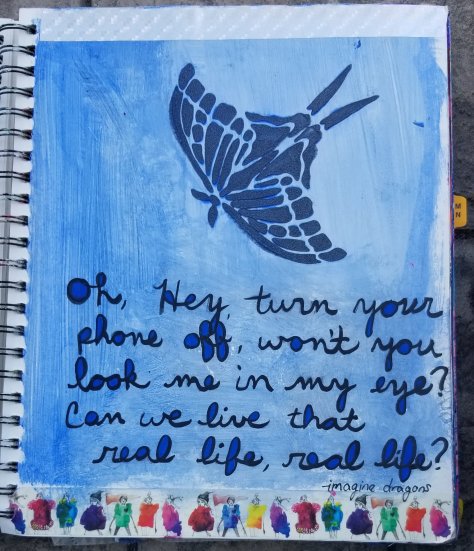 Oh, Hey, turn your
phone off, won't you
look me in my eye?
Can we live that
real life, real life?
-imagine dragons
M
N